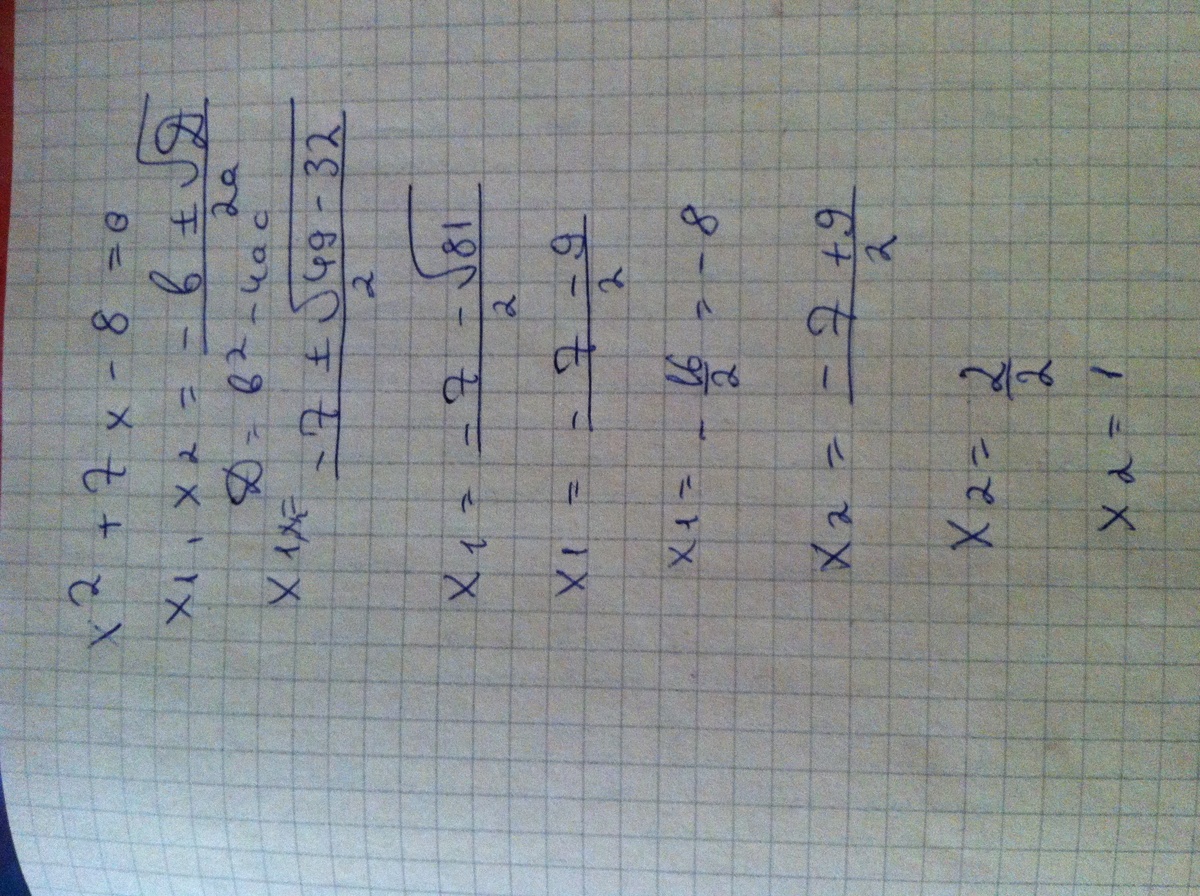 x2 + 7x - 8 = 0
x1, x2 = -b ± √D / 2a
D = b2 - 4ac
x1,x2= -7 ± √49 - 32 / 2
x1 = -7 - √81 / 2
x1 = -7 - 9 / 2
x1 = - 16/2 = -8
x2 = -7 + 9 / 2
x2 = 2/2
x2 = 1